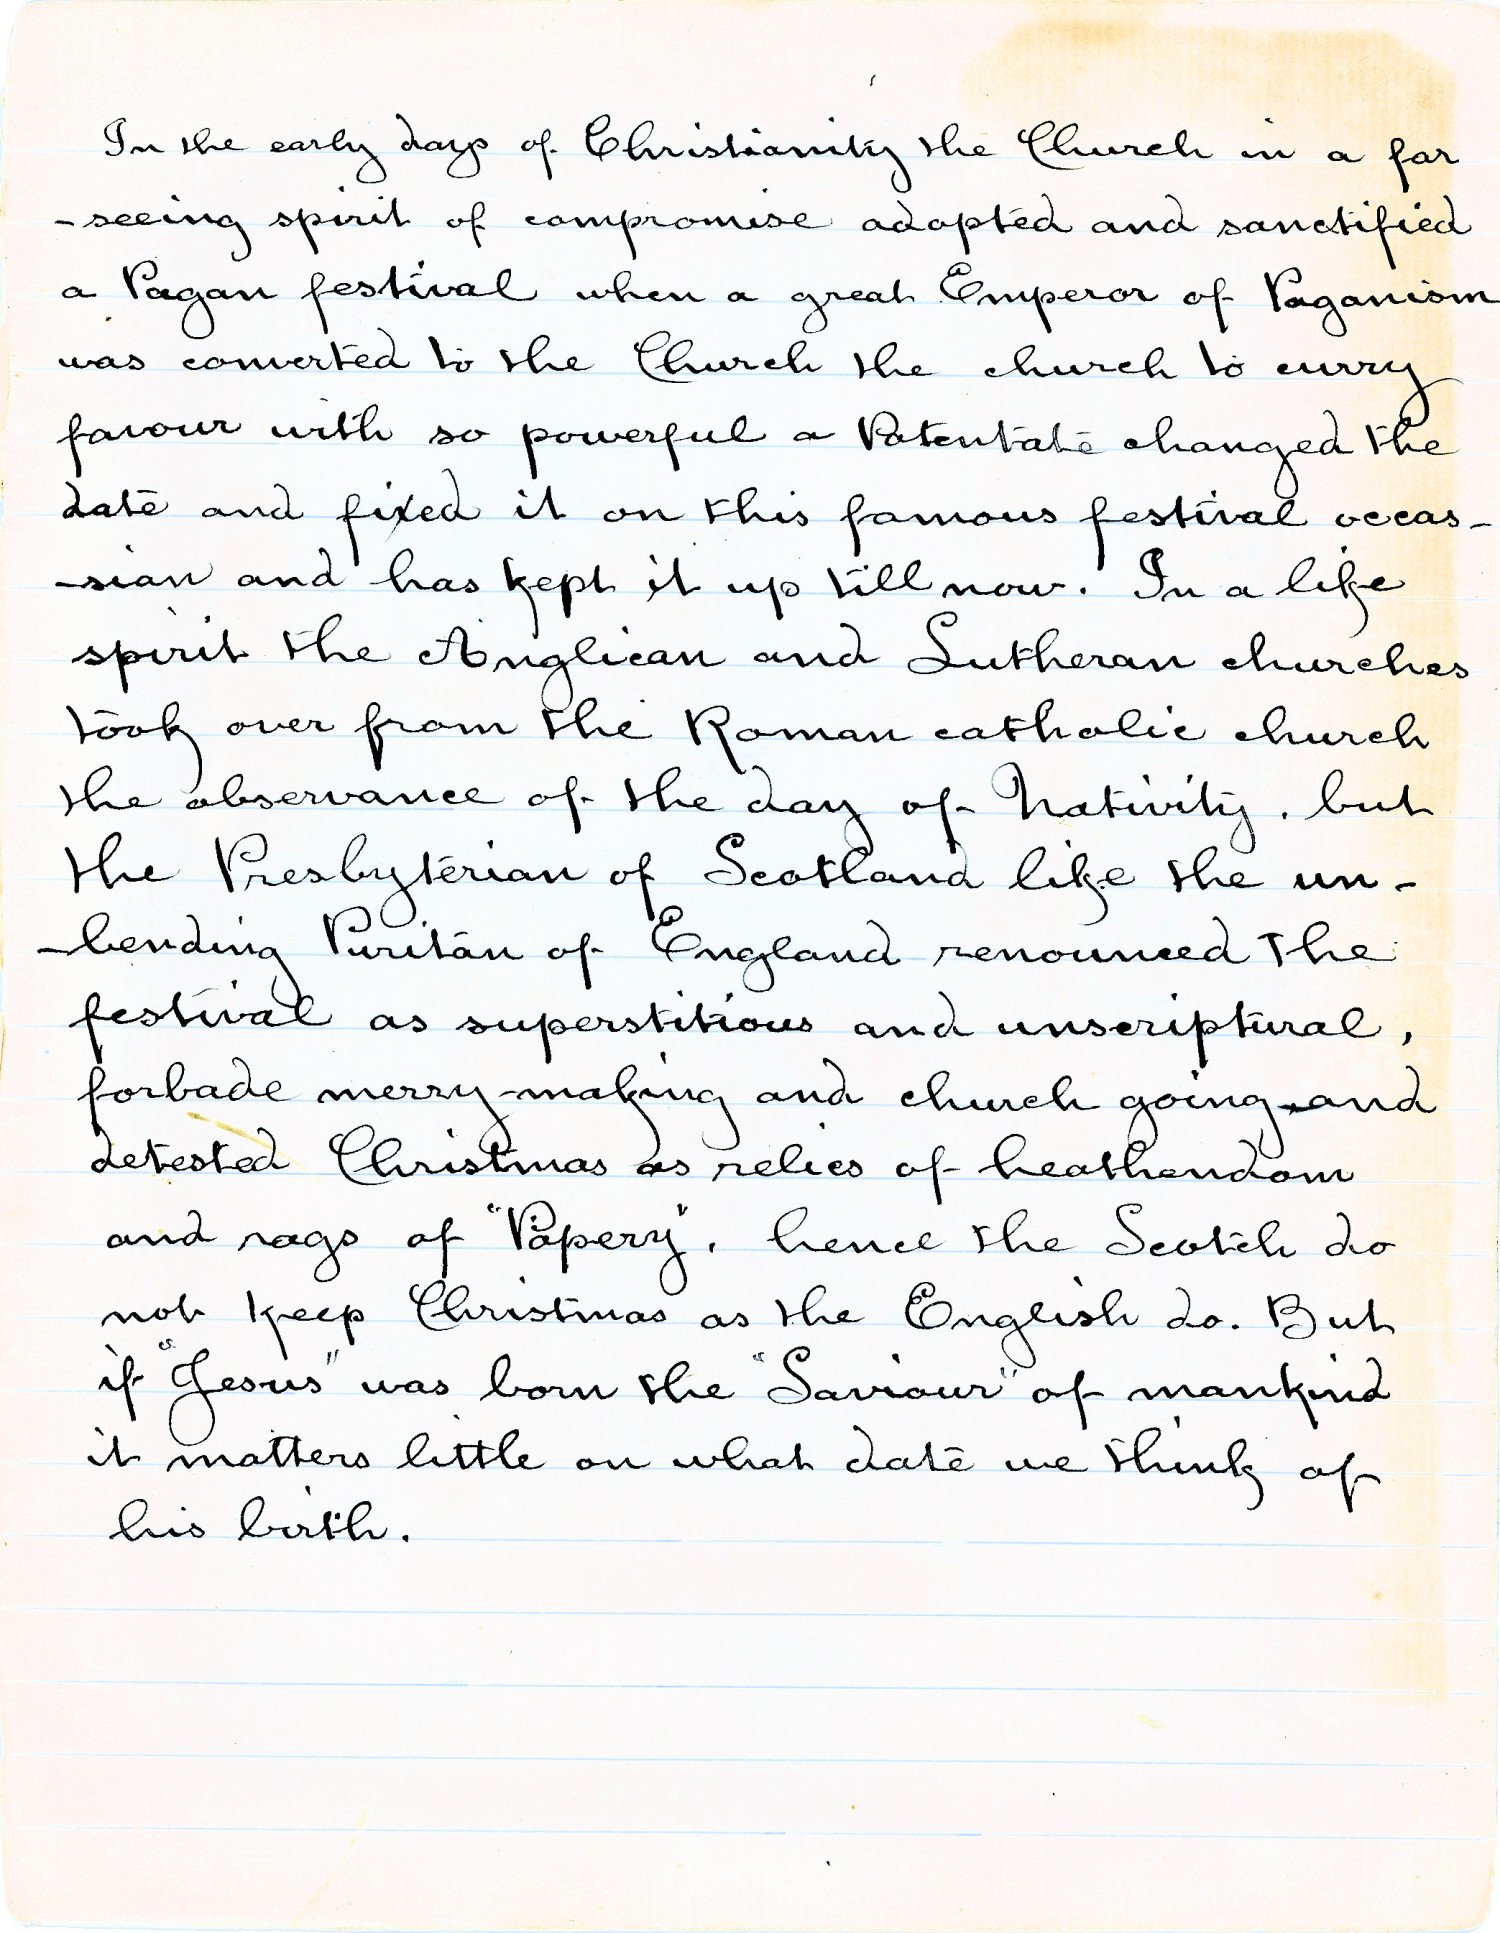 In the early days of Christianity the Church in a far
-seeing spirit of compromise adopted and sanctified
a Pagan festival when a great Emperor of Paganism
was converted to the Church the church to curry
favour with so powerful a Potentate changed the
date and fixed it on this famous festival occas-
-sion and has kept it up till now. In a like
spirit the Anglican and Lutheran churches
took over from the Roman catholic church
the observance of the day of Nativity, but
the Presbyterian of Scotland like the un-
-bending Puritan of England renounced the
festival as superstitious and unscriptural,
forbade merry-making and church going and
detested Christmas as relics of heathendom
and rags of "Popery", hence the Scotch do
not keep Christmas as the English do. But
if "Jesus" was born the "Saviour" of mankind
it matters little on what date we think of
his birth.